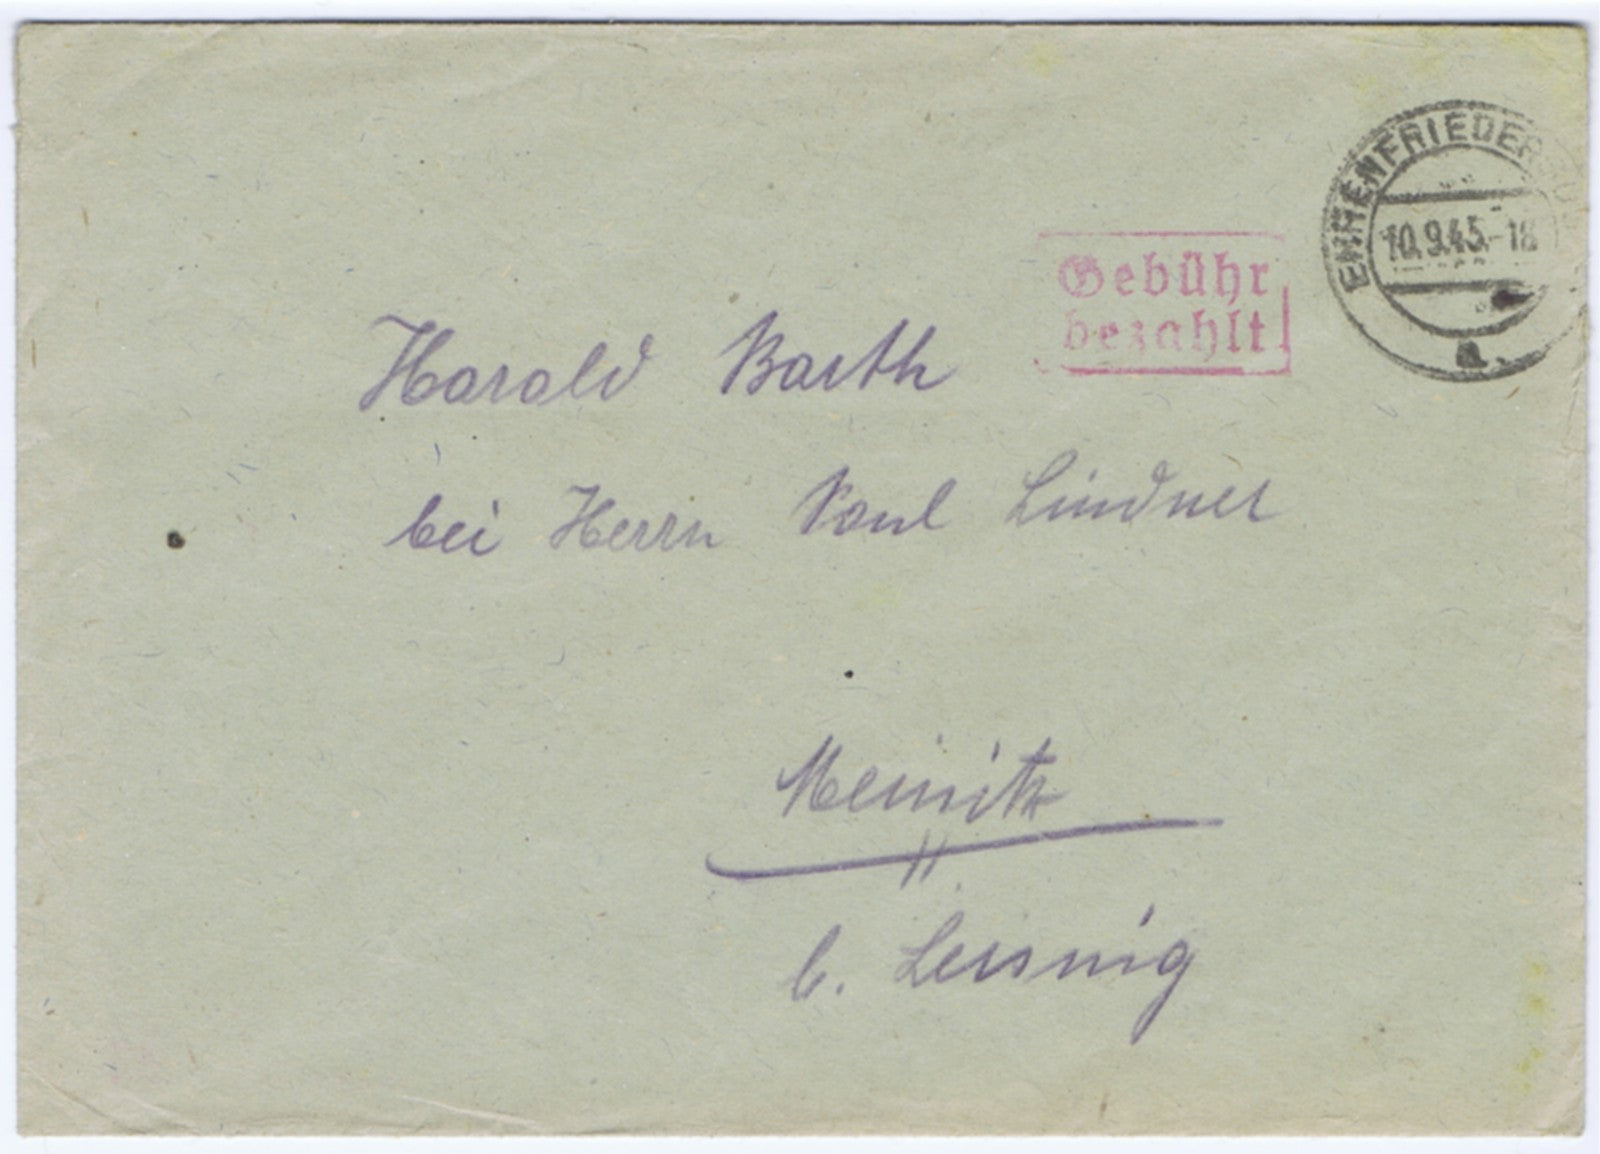 EHRENFRIEDERS
10.9.45.-18
a.
Gebühr
bezahlt
Harald Barth
bei Herrn Paul Lindner
Meinitz
b. Leisnig